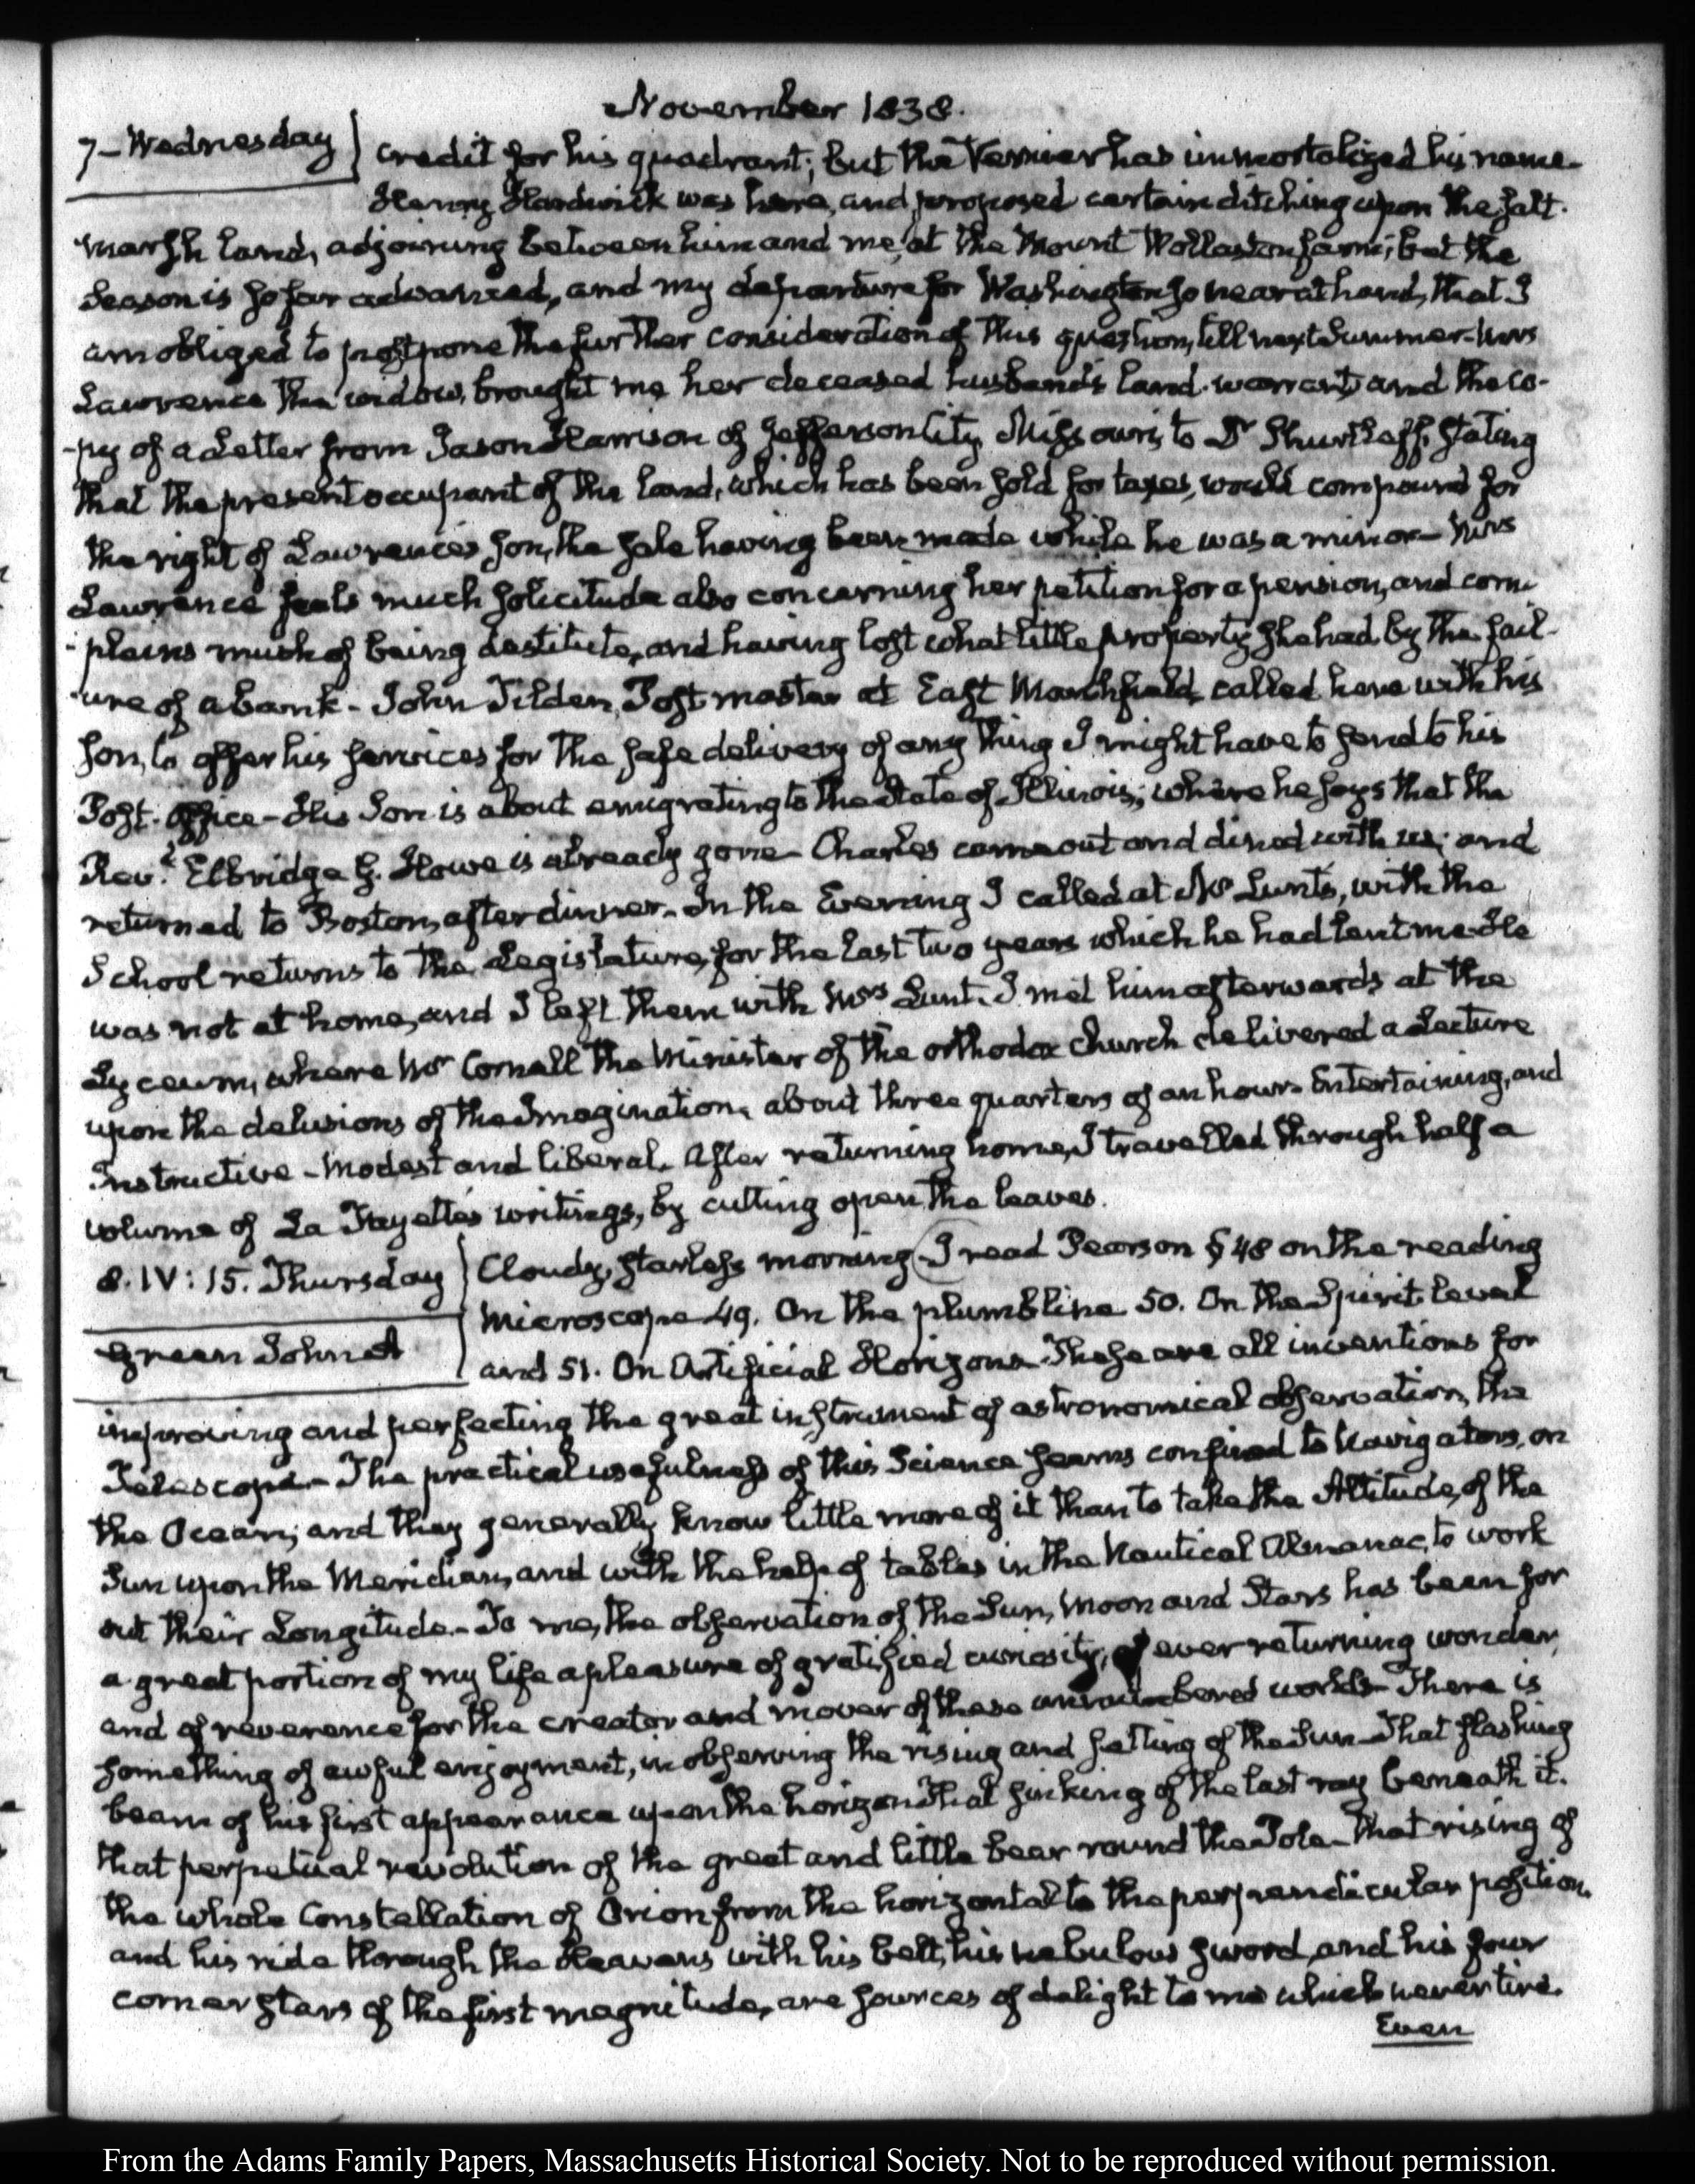 November 1838.
7 – Wednesday
credit for his quadrant; but the Vernier has immortalized his name.
Henry Hardwick was here, and proposed certain ditching upon the Salt-
marsh land, adjoining between him and me, at the Mount Wollaston farm; but the
Season is so far advanced, and my departure for Washington so near at hand, that I
am obliged to postpone the further consideration of this question, till next Summer – Mrs
Lawrence the widow, brought me her deceased husband's land-warrant, and the co-
-py of a Letter from Jason Harrison of Jefferson City, Missouri, to Dr Shurtleff, stating
that the present occupant of the land, which has been sold for taxes, would compound for
the right of Lawrence's son, the sale having been made while he was a minor – Mrs
Lawrence feels much solicitude also concerning her petition for a pension, and com-
-plains much of being destitute, and having lost what little property she had by the fail-
-ure of a bank – John Tilden, Post-master at East Marshfield, called here with his
son, to offer his services for the safe delivery of any thing I might have to send to his
Post-office – His Son is about emigrating to the State of Illinois; where he says that the
Revd. Elbridge G. Howe is already gone – Charles came out and dined with us; and
returned to Boston, after dinner – In the Evening I called at Mr Lunt's, with the
School returns to the Legislature, for the last two years which he had lent me – He
was not at home, and I left them with Mrs Lunt. I met him afterwards at the
Lyceum, where Mr Cornell the Minister of the orthodox church delivered a Lecture
upon the delusions of the Imagination, about three quarters of an hour – Entertaining, and
Instructive – Modest and liberal. After returning home, I travelled through half a
volume of La Fayette's writings, by cutting open the leaves.
8. IV: 15. Thursday
Cloudy, starless morning – I read Pearson § 48 on the reading
Microscope 49. On the plumb line 50. On the Spirit-level
Green John A
and 51. On Artificial Horizons – These are all inventions for
improving and perfecting the great instrument of astronomical observation, the
Telescope – The practical usefulness of this Science seems confined to Navigators, on
the Ocean; and they generally know little more of it than to take the Altitude, of the
Sun upon the Meridian, and with the help of tables in the Nautical Almanac, to work
out their Longitude – To me, the observation of the Sun, Moon and Stars has been for
a great portion of my life a pleasure of gratified curiosity, of ever returning wonder,
and of reverence for the creator and mover of these unnumbered worlds – There is
something of awful enjoyment, in observing the rising and setting of the Sun – That flashing
beam of his first appearance upon the horizon – That sinking of the last ray beneath it.
that perpetual revolution of the great and little bear round the Pole – That rising of
the whole Constellation of Orion from the horizontal to the perpendicular position,
and his ride through the Heavens with his belt, his nebulous sword, and his four
corner stars of the first magnitude, are sources of delight to me which never tire.
Even
From the Adams Family Papers, Massachusetts Historical Society. Not to be reproduced without permission.